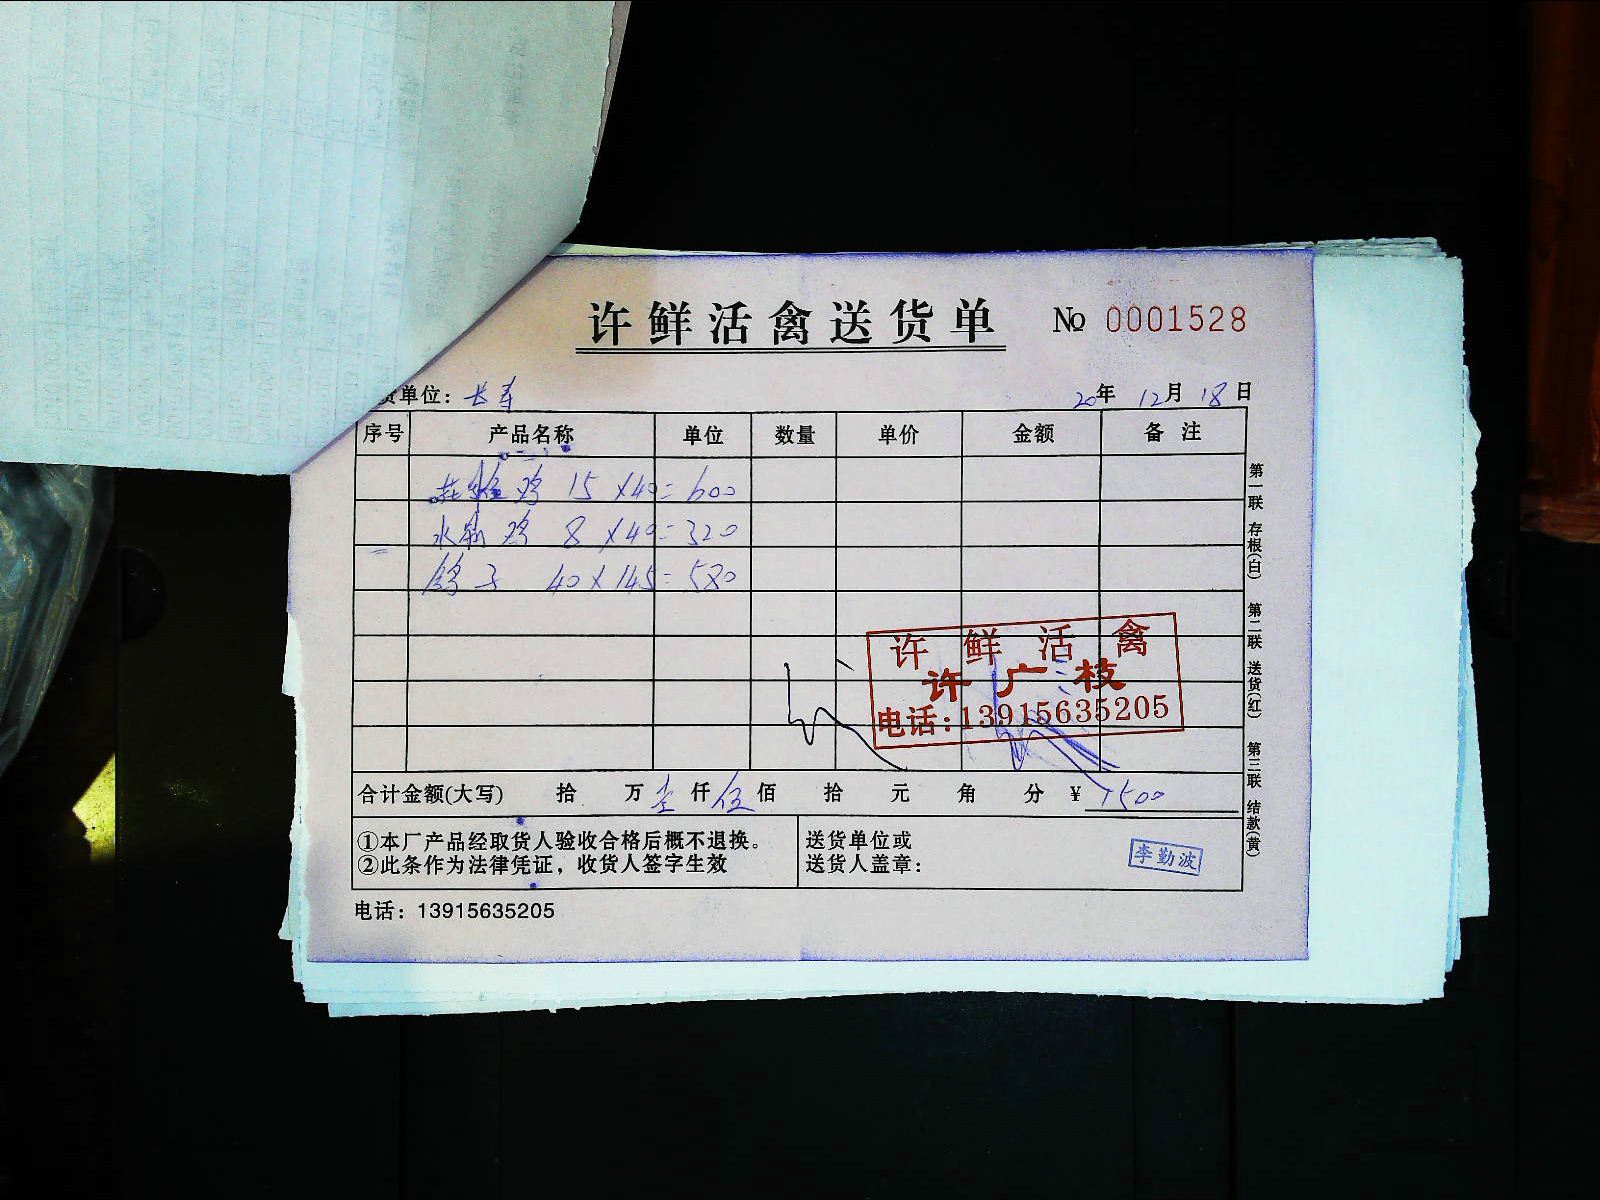 许鲜活禽送货单 No 0001528
货单位：长寿 20年 12月 18日
序号 产品名称 单位 数量 单价 金额 备注
鸡 15 X40=600
水 鸡 8 X40=320
鸽子 40X145=580
许鲜活禽
许广枝
电话：13915635205
合计金额(大写) 拾 万 壹 仟 伍 佰 拾 元 角 分 ¥ 1500
①本厂产品经取货人验收合格后概不退换。
②此条作为法律凭证，收货人签字生效
送货单位或
送货人盖章：
李勤波
电话：13915635205
第一联 存根(白) 第二联 送货(红) 第三联 结款(黄)